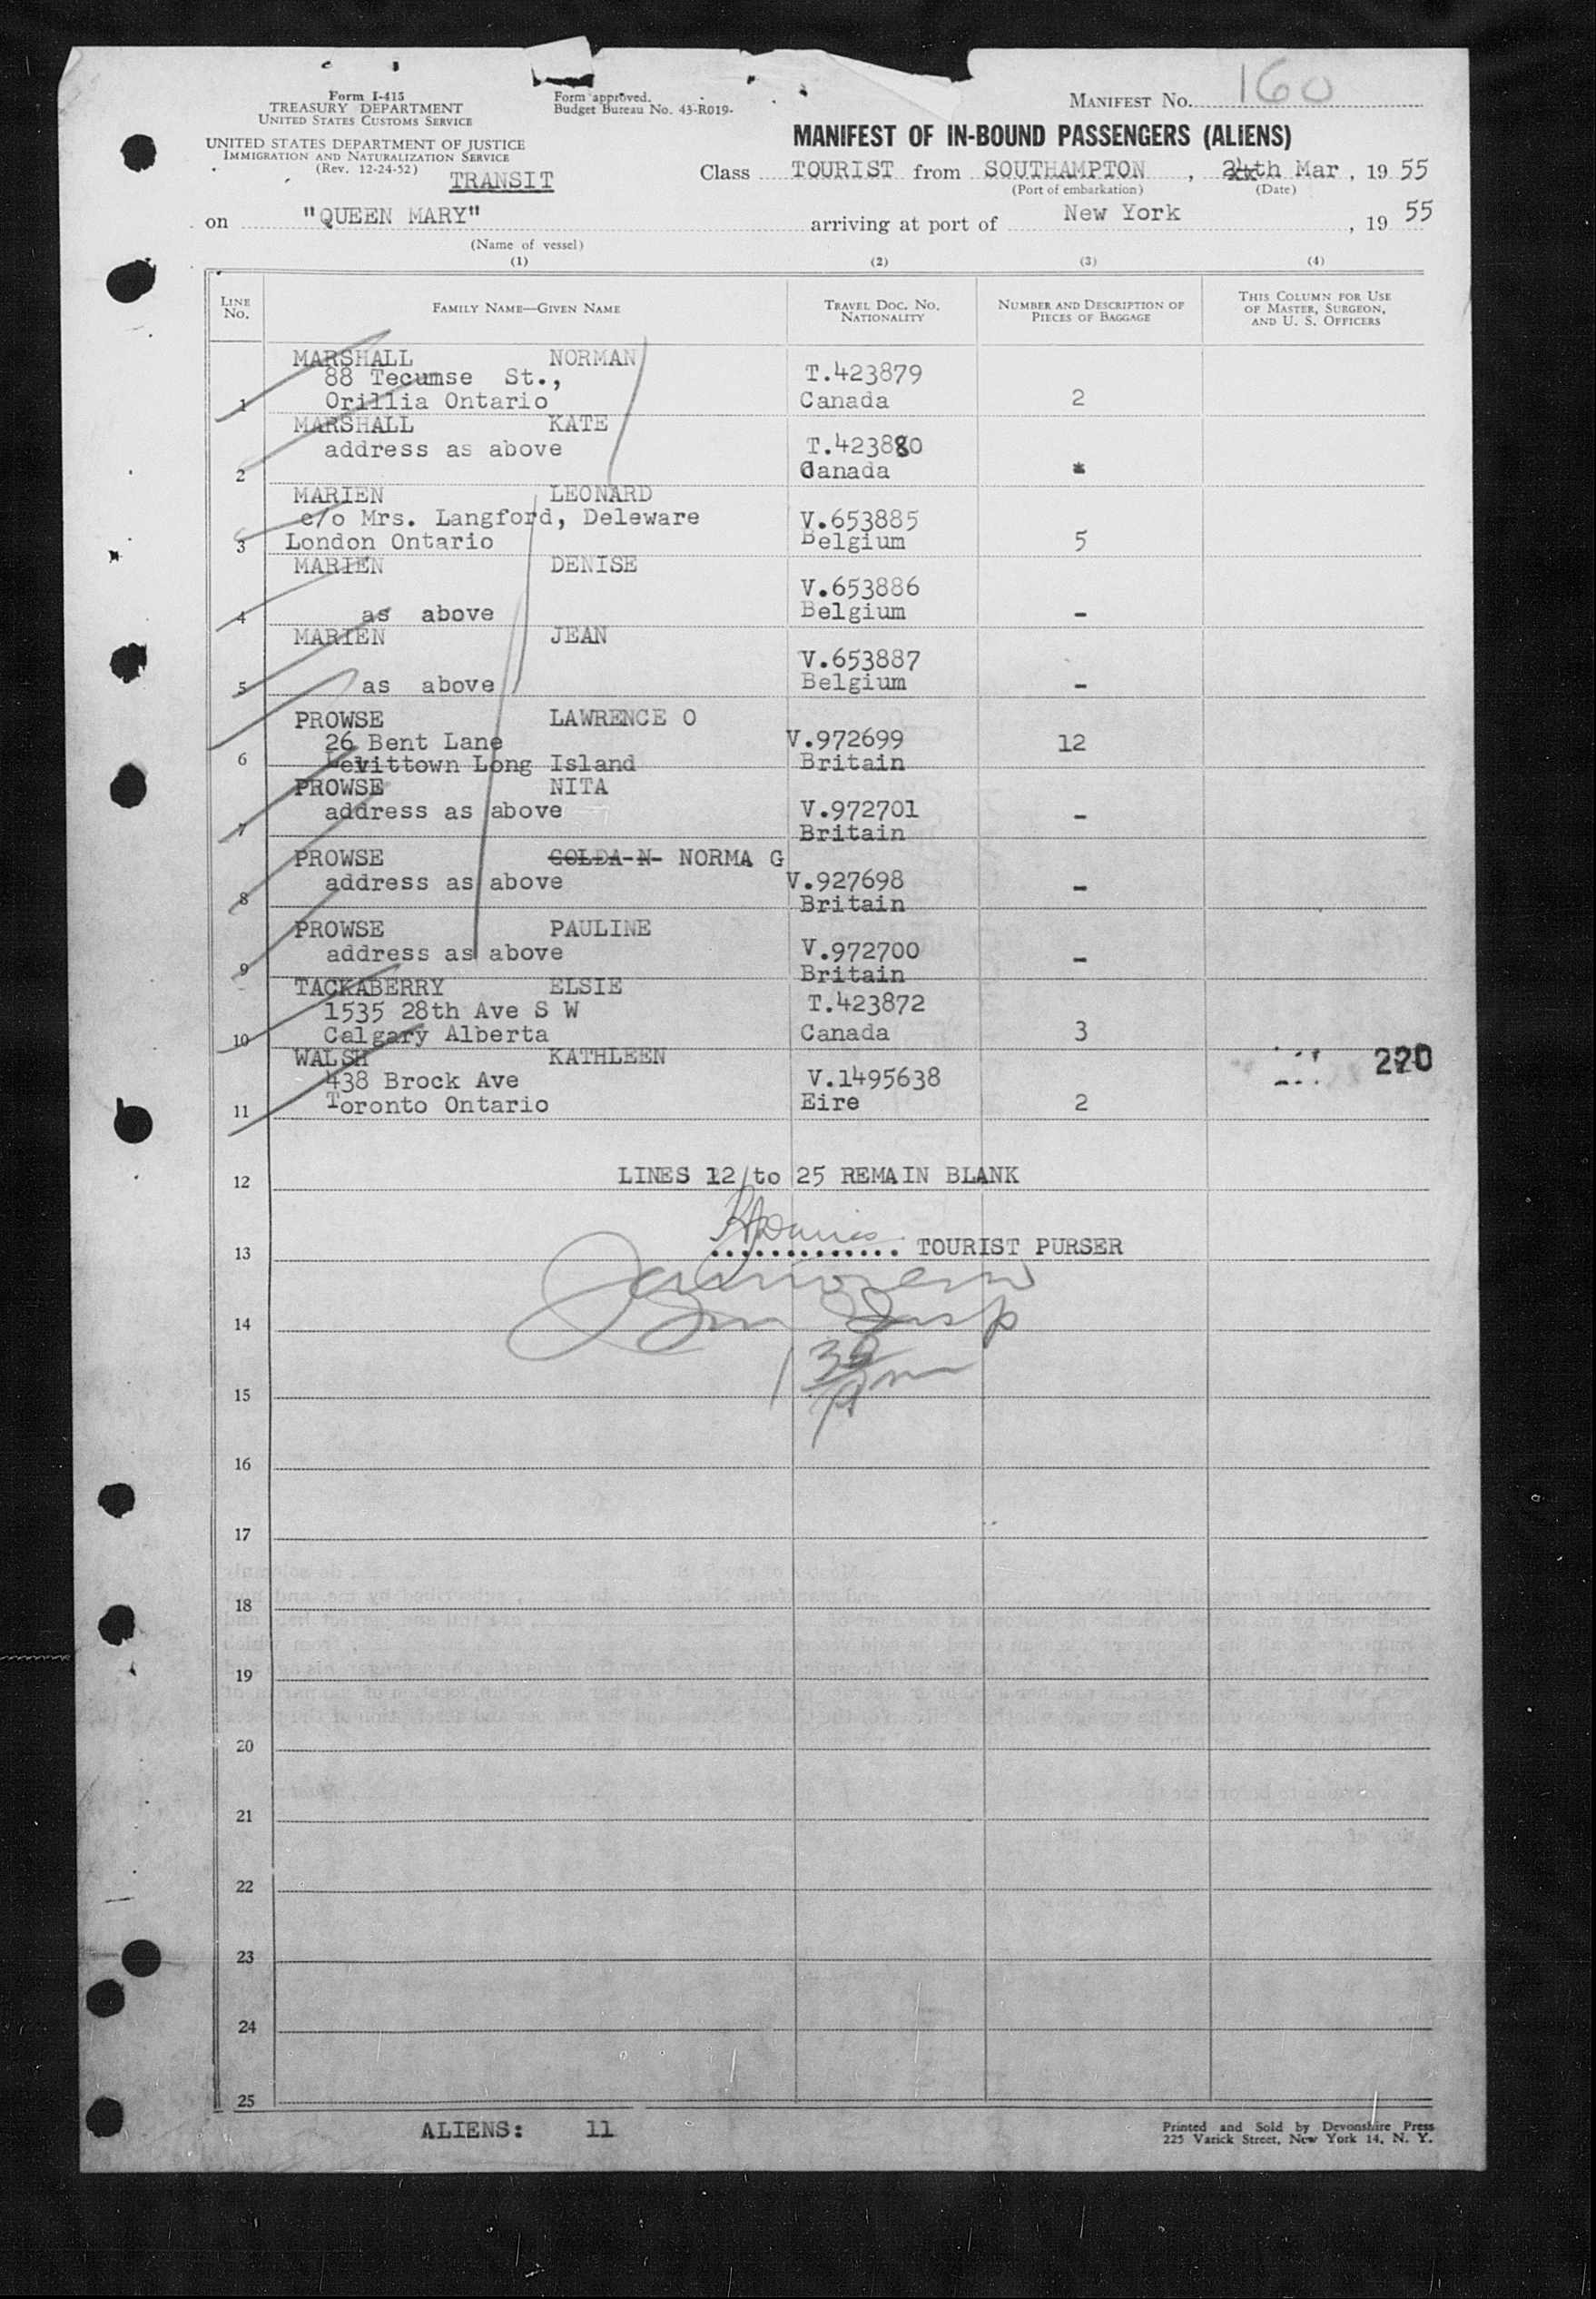 Form I-415
TREASURY DEPARTMENT
UNITED STATES CUSTOMS SERVICE
UNITED STATES DEPARTMENT OF JUSTICE
IMMIGRATION AND NATURALIZATION SERVICE
(Rev. 12-24-52)
TRANSIT
Form approved.
Budget Bureau No. 43-R019-
MANIFEST No. 160
MANIFEST OF IN-BOUND PASSENGERS (ALIENS)
Class TOURIST from SOUTHAMPTON, 24th Mar, 19 55
(Port of embarkation) (Date)
on "QUEEN MARY" arriving at port of New York, 19 55
(Name of vessel)
(1) (2) (3) (4)
LINE No. FAMILY NAME—GIVEN NAME TRAVEL DOC. NO. NATIONALITY NUMBER AND DESCRIPTION OF PIECES OF BAGGAGE THIS COLUMN FOR USE OF MASTER, SURGEON, AND U. S. OFFICERS
MARSHALL NORMAN
88 Tecumse St., T.423879
1 Orillia Ontario Canada 2
MARSHALL KATE
address as above T.423880
2 Canada
MARIEN LEONARD
c/o Mrs. Langford, Deleware V.653885
3 London Ontario Belgium 5
MARIEN DENISE
V.653886
4 as above Belgium -
MARIEN JEAN
V.653887
5 as above Belgium -
PROWSE LAWRENCE O
26 Bent Lane V.972699 12
6 Levittown Long Island Britain
PROWSE NITA
address as above V.972701 -
7 Britain
PROWSE GOLDA N NORMA G
address as above V.927698 -
8 Britain
PROWSE PAULINE
address as above V.972700 -
9 Britain
TACKABERRY ELSIE
1535 28th Ave S W T.423872
10 Calgary Alberta Canada 3
WALSH KATHLEEN 220
438 Brock Ave V.1495638
11 Toronto Ontario Eire 2
12 LINES 12 to 25 REMAIN BLANK
13 ............. TOURIST PURSER
14
15
16
17
18
19
20
21
22
23
24
25
ALIENS: 11
Printed and Sold by Devonshire Press
225 Varick Street, New York 14, N. Y.